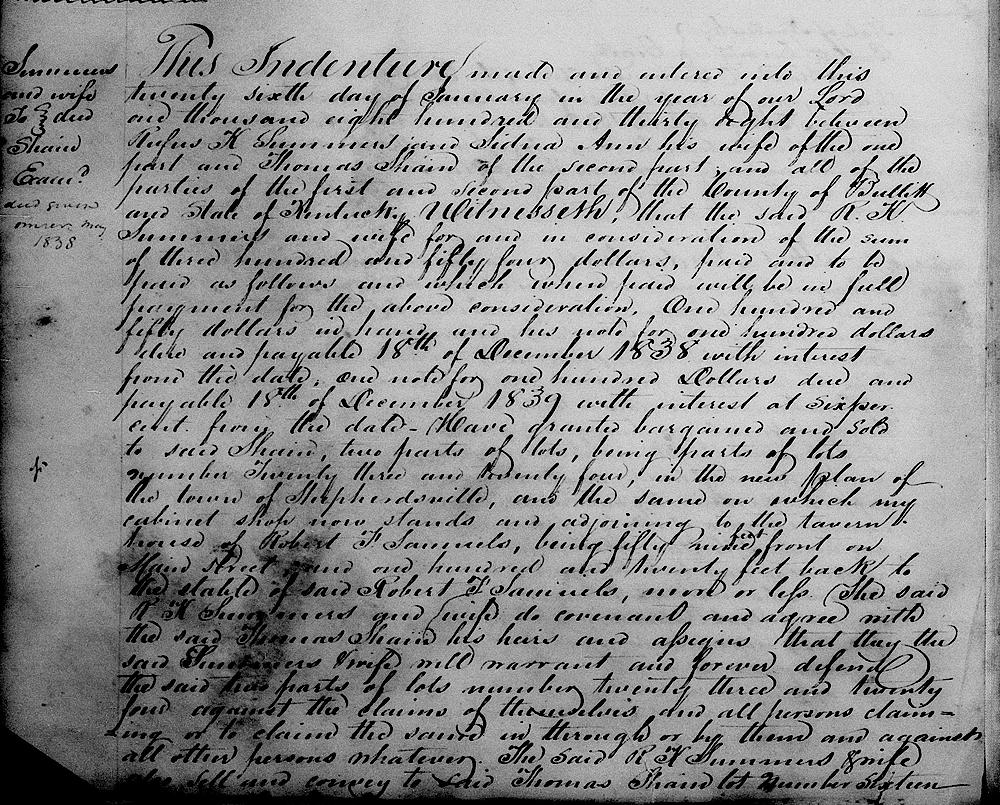 Summers
and wife
To } deed
Shain
Exam?
deed given
owner May
1838
This Indenture made and entered into this
twenty sixth day of January in the year of our Lord
one thousand eight hundred and thirty eight between
Rufus K Summers and Sidna Ann his wife of the one
part and Thomas Shain of the second part, and all of the
parties of the first and second part of the County of Bullitt
and State of Kentucky Witnesseth, that the said R. K
Summers and wife for and in consideration of the sum
of three hundred and fifty four dollars, paid and to be
paid as follows and which when paid will be in full
payment for the above consideration, One hundred and
fifty dollars in hand, and his note for one hundred dollars
due and payable 18th of December 1838 with interest
from the date, one note for one hundred Dollars due and
payable 18th of December 1839 with interest at six per
cent. from the date - Have granted bargained and sold
to said Shain, two parts of lots, being parts of lots
number Twenty three and twenty four, in the new plan of
the town of Shepherdsville, and the same on which my
cabinet shop now stands and adjoining to the tavern
house of Robert F Samuels, being fifty nine feet front on
Main street and one hundred and twenty feet back to
the stable of said Robert F Samuels, more or less. The said
R K Summers and wife do covenant and agree with
the said Thomas Shain his heirs and assigns that they the
said Summers & wife will warrant and forever defend
the said two parts of lots number twenty three and twenty
four against the claims of themselves and all persons claim=
ing or to claim the same in through or by them and against
all other persons whatever. The said R K Summers & wife
also sell and convey to said Thomas Shain lot number sixteen